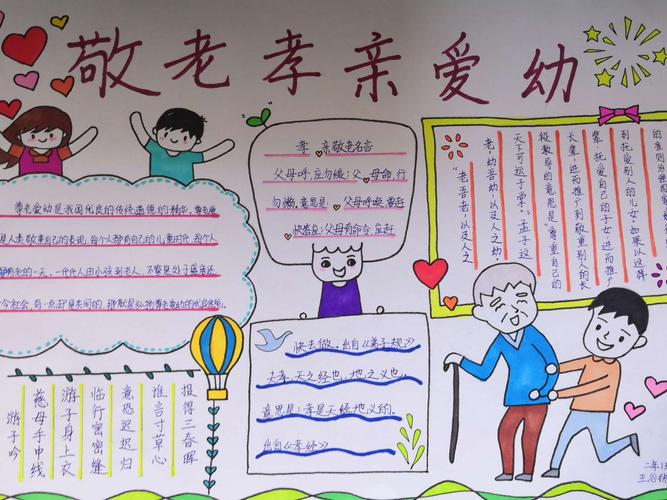 敬老孝亲爱幼
尊老爱幼是我国优良的传统道德的精华,尊老爱
是人类敬重自己的表现,每个人都有自己的儿童时代,每个人
老的一天,一代代人由小孩到老人,不管是处于盛唐还
今社会,有一点却是共同的,那就是弘扬尊老爱幼的优良传统.
孝亲敬老名言
父母呼,应勿缓;父母命,行
勿懒.意思是:父母呼唤,要赶
快答应;父母有命令,应赶
快去做.出自《弟子规》
夫孝,天之经也,地之义也.
意思是:孝是天经地义的.
出自《孝经》
“老吾老,以及人之
老,幼吾幼,以及人之幼
天下可运于掌”,孟子这
级教导的意思是“尊重自己的
长辈,进而推广到敬重别人的长
辈;抚爱自己的子女,进而推广
到抚爱别人的儿女,如果以这样
的准则为
游子吟
慈母手中线
游子身上衣
临行密密缝
意恐迟迟归
谁言寸草心
报得三春晖
二年1
王谷